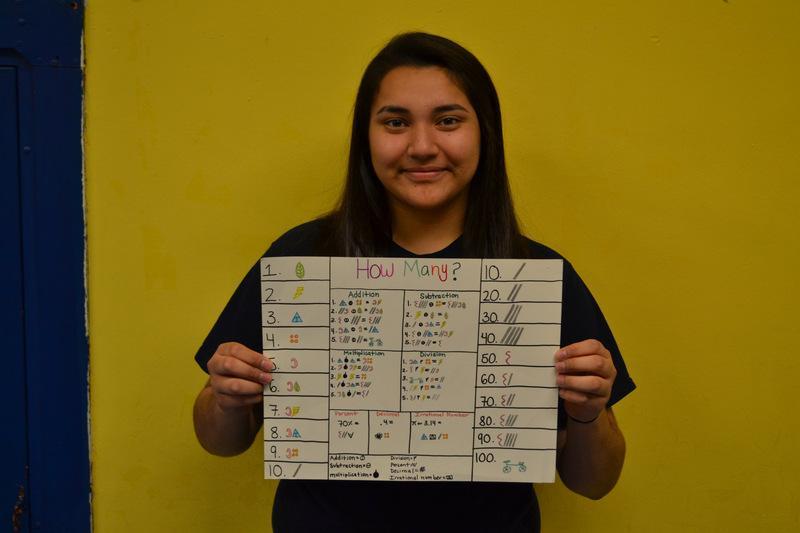 How Many?
1.
2.
3.
4.
5.
6.
7.
8.
9.
10.
Addition
1.
2.
3.
4.
5.
Subtraction
1.
2.
3.
4.
5.
Multiplication
1.
2.
3.
4.
5.
Division
1.
2.
3.
4.
5.
Percent
70% =
Decimal
.4 =
Irrational Number
π or 3.14 =
Addition =
Subtraction =
Multiplication =
Division =
Percent =
Decimal =
Irrational number =
10.
20.
30.
40.
50.
60.
70.
80.
90.
100.